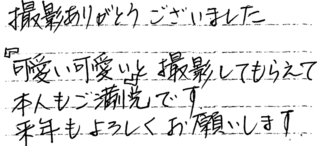 撮影ありがとうございました
『可愛い可愛い』と撮影してもらえて
本人もご満悦です
来年もよろしくお願いします